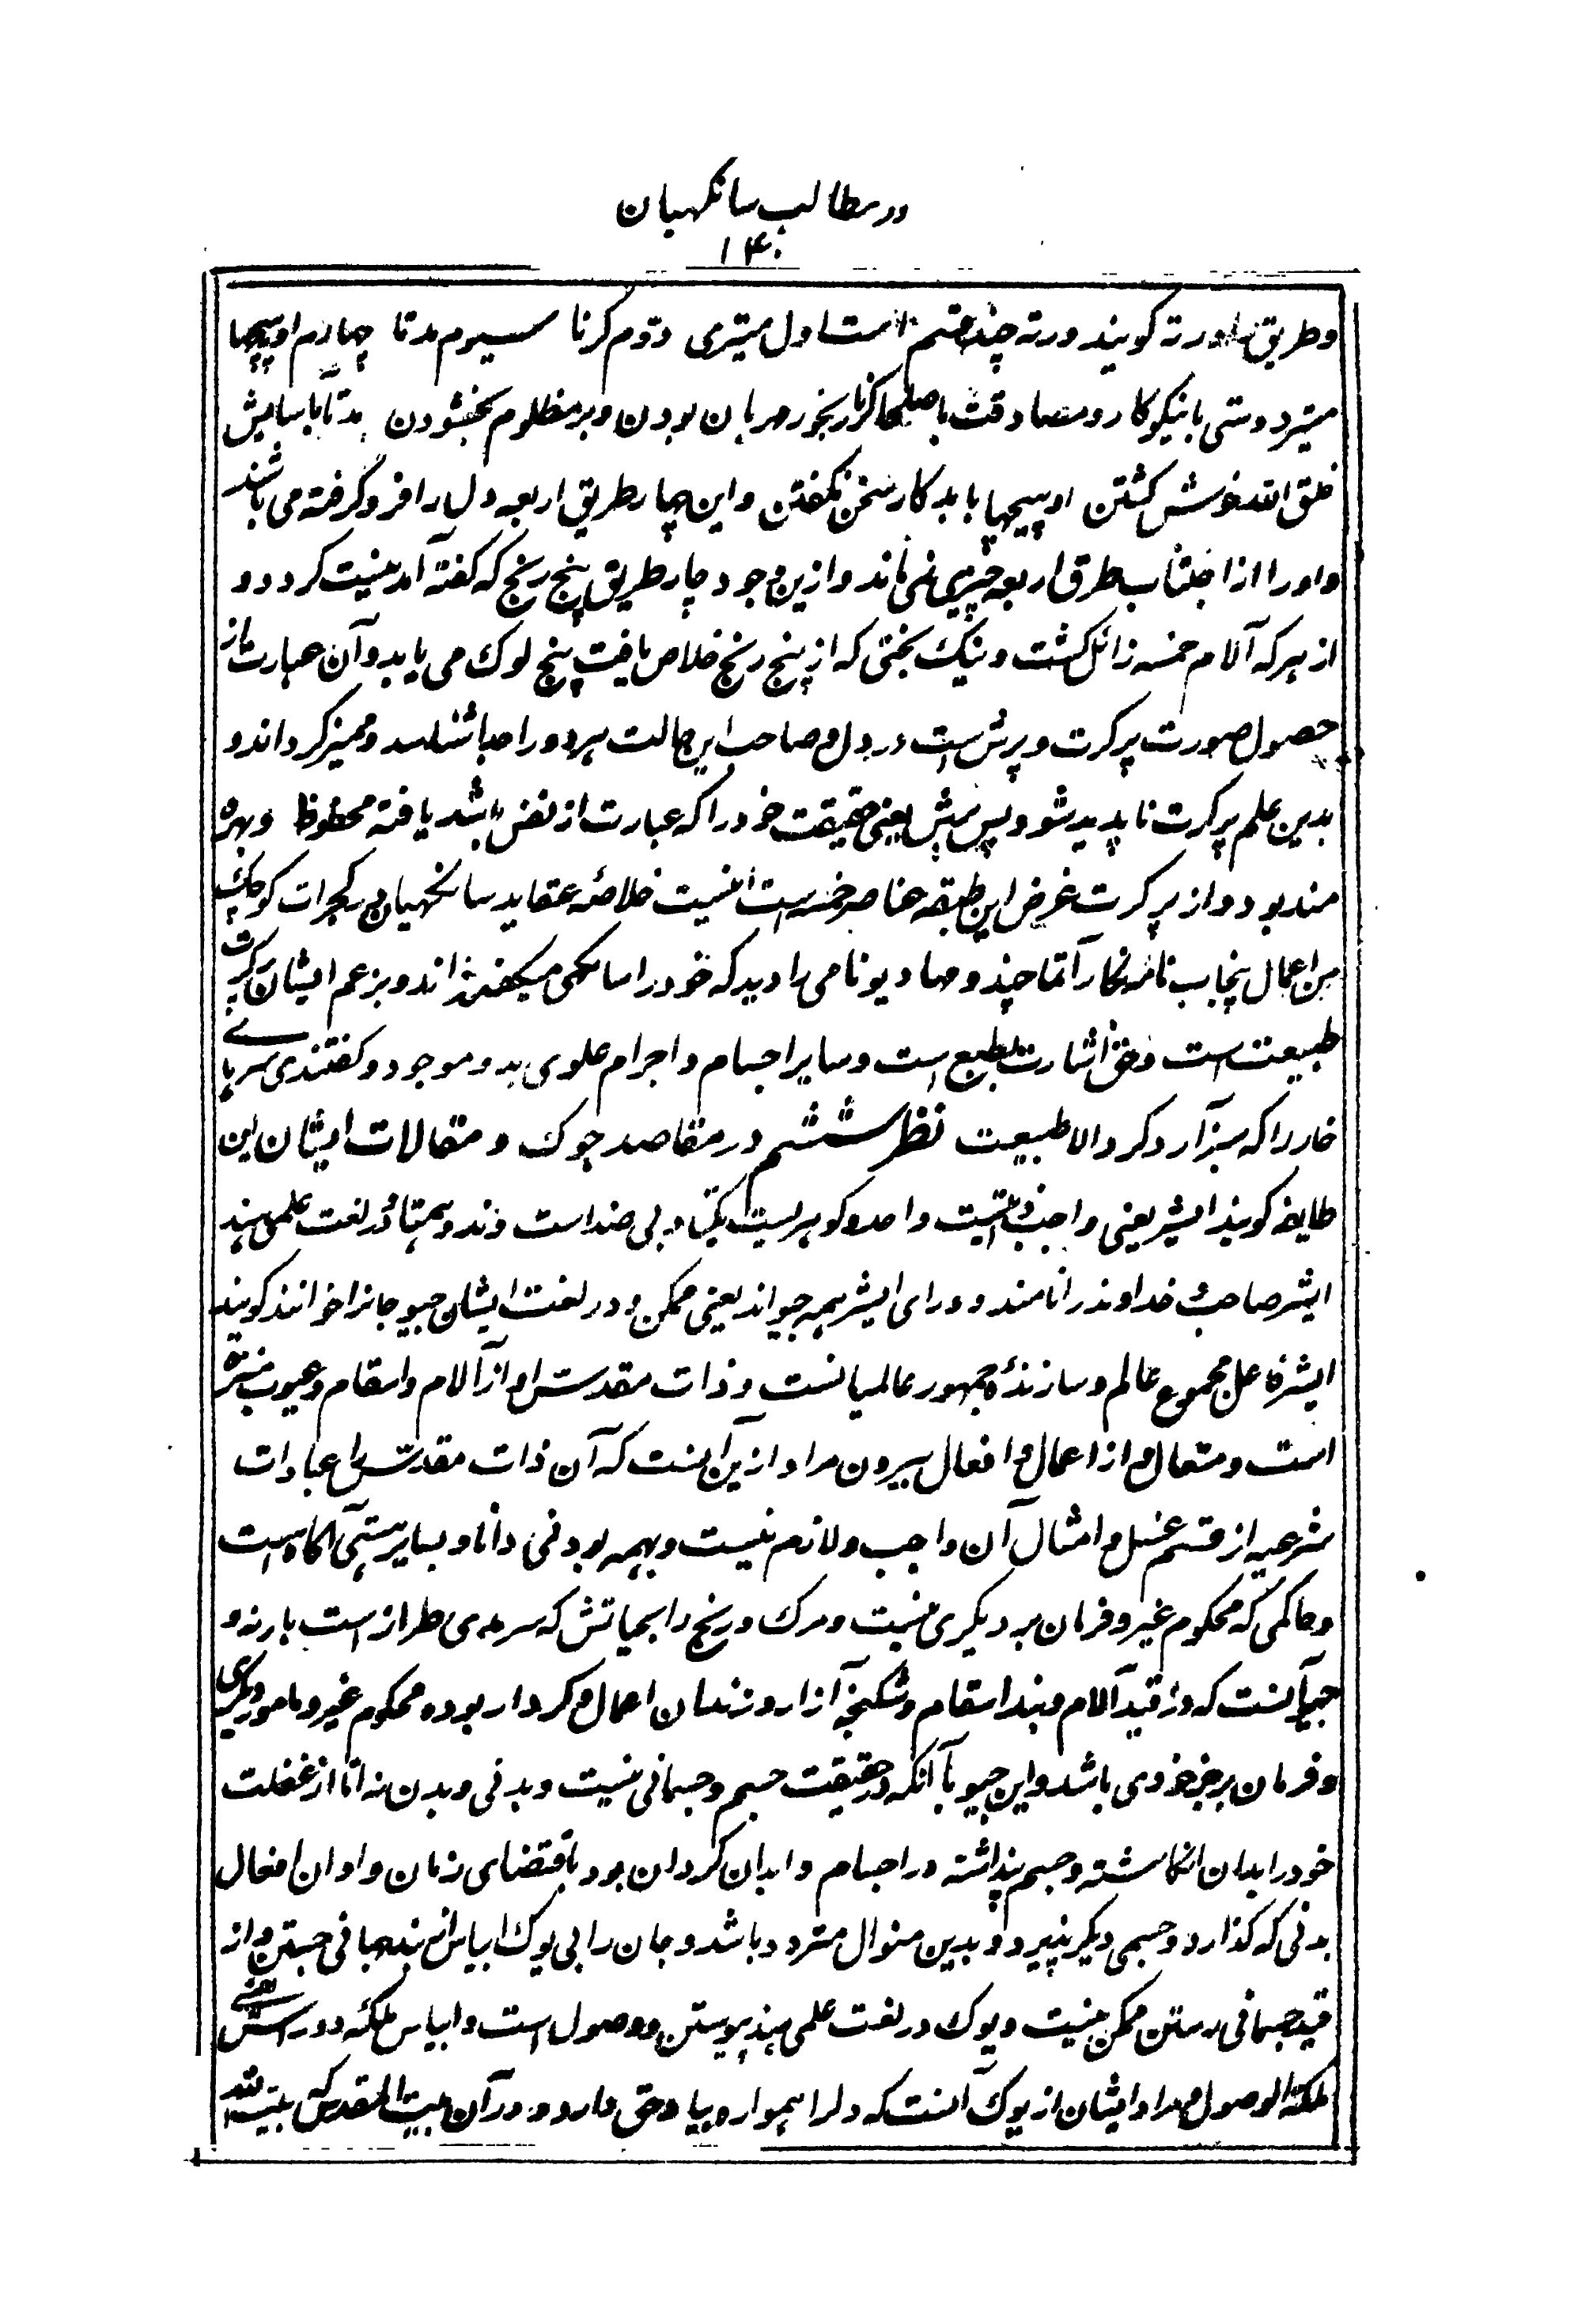 در مطالب سانکهیان
۱۴۰
و طریق را ورته کویند ورته چند قسم است اول میتری دوّم کرنا سیوم مدتا چهارم اوپیچها
میتر دوستی با نیکوکار و مصادقت با صلحا کرنا بر رنجور مهربان بودن و بر مظلوم بخشودن مدتا با سایش
خلق الله خوش کشتن اوپیچها با بدکار سخن نکفتن و این چهار طریق اربعه دل را فرو کرفته می باشند
و او را از اجتناب طرق اربعه چیزی نمی ماند و از این وجود چار طریق پنج رنج که کفته آمد نیست کردد و
از هر که آلام خمسه زائل کشت و نیک بختی که از پنج رنج خلاص یافت پنج لوک می یابد و آن عبارت از
حصول صورت پرکرت و پرش است در دل و صاحب این حالت هر دو را جدا شناسد و ممیز کرداند و
بدین علم پرکرت ناپدید شود پس پرش یعنی حقیقت خود را که عبارت از نفس باشد یافته محظوظ و بهره
مند بود و از پرکرت غرض این طبقه عناصر خمسه است اینست خلاصهٔ عقاید سانکهیان در کجرات کوچک
من اعمال پنجاب نامه نکار آتما چند و مهادیو نامی را دید که خود را سانکهی میکفتند و بزعم ایشان پرکرت
طبیعت است و حق اشارت بطبع است و سایر اجسام و اجرام علوی بدو موجود و کفتندی سرپای
خار را که سبز آرد کرد الا طبیعت نظر ششم در مقاصد جوک و مقالات ایشان این
طایفه کویند ایشر یعنی واجب الوجود یکیست واحد و کوهریست یکتا و بی ضد است و ند و همتا در لغت علمی هند
ایشر صاحب و خداوند را نامند و ورای ایشر همه جیواند یعنی ممکن و در لغت ایشان جیو جانرا خوانند کویند
ایشر فاعل مجموع عالم و سازندهٔ جمهور عالمیانست و ذات مقدسش او از آلام و اسقام و عیوب منزه
است و متعال و از اعمال و افعال بیرون مراد از این آنست که آن ذات مقدس را عبادات
شرعیه از قسم غسل و امثال آن واجب و لازم نیست و بهمه بودنی دانا و بسایر هستی آکاه است
و حاکمی که محکوم غیر و فرمان بر دیکری نیست و مرک و رنج را بحیاتش که سرمدی طراز است بار نه و
جیو آنست که در قید آلام و بند اسقام و شکنجه آزار و زندان اعمال و کردار بوده محکوم غیر و مامور دیکری
و فرمان بر جز خودی باشد و این جیو با آنکه در حقیقت جسم و جسمانی نیست و بدنی و بدن نه اما از غفلت
خود را بدان انکاشته و جسم پنداشته در اجسام و ابدان کردان بود باقتضای زمان و اوان افعال
بدنی که کذارد و جسمی دیکر پذیرد و بدین منوال متردد باشد و جان را بی یوک ابیاس از بند جانی جستن و از
قید جسمانی رستن ممکن نیست و یوک در لغت علمی هند پیوستن و وصول است و ابیاس ملکه و ورزش یعنی
ملکة الوصول مراد ایشان از یوک آنست که دل را همواره بیاد حق دارد و در آن بیت المقدس که بیت الله